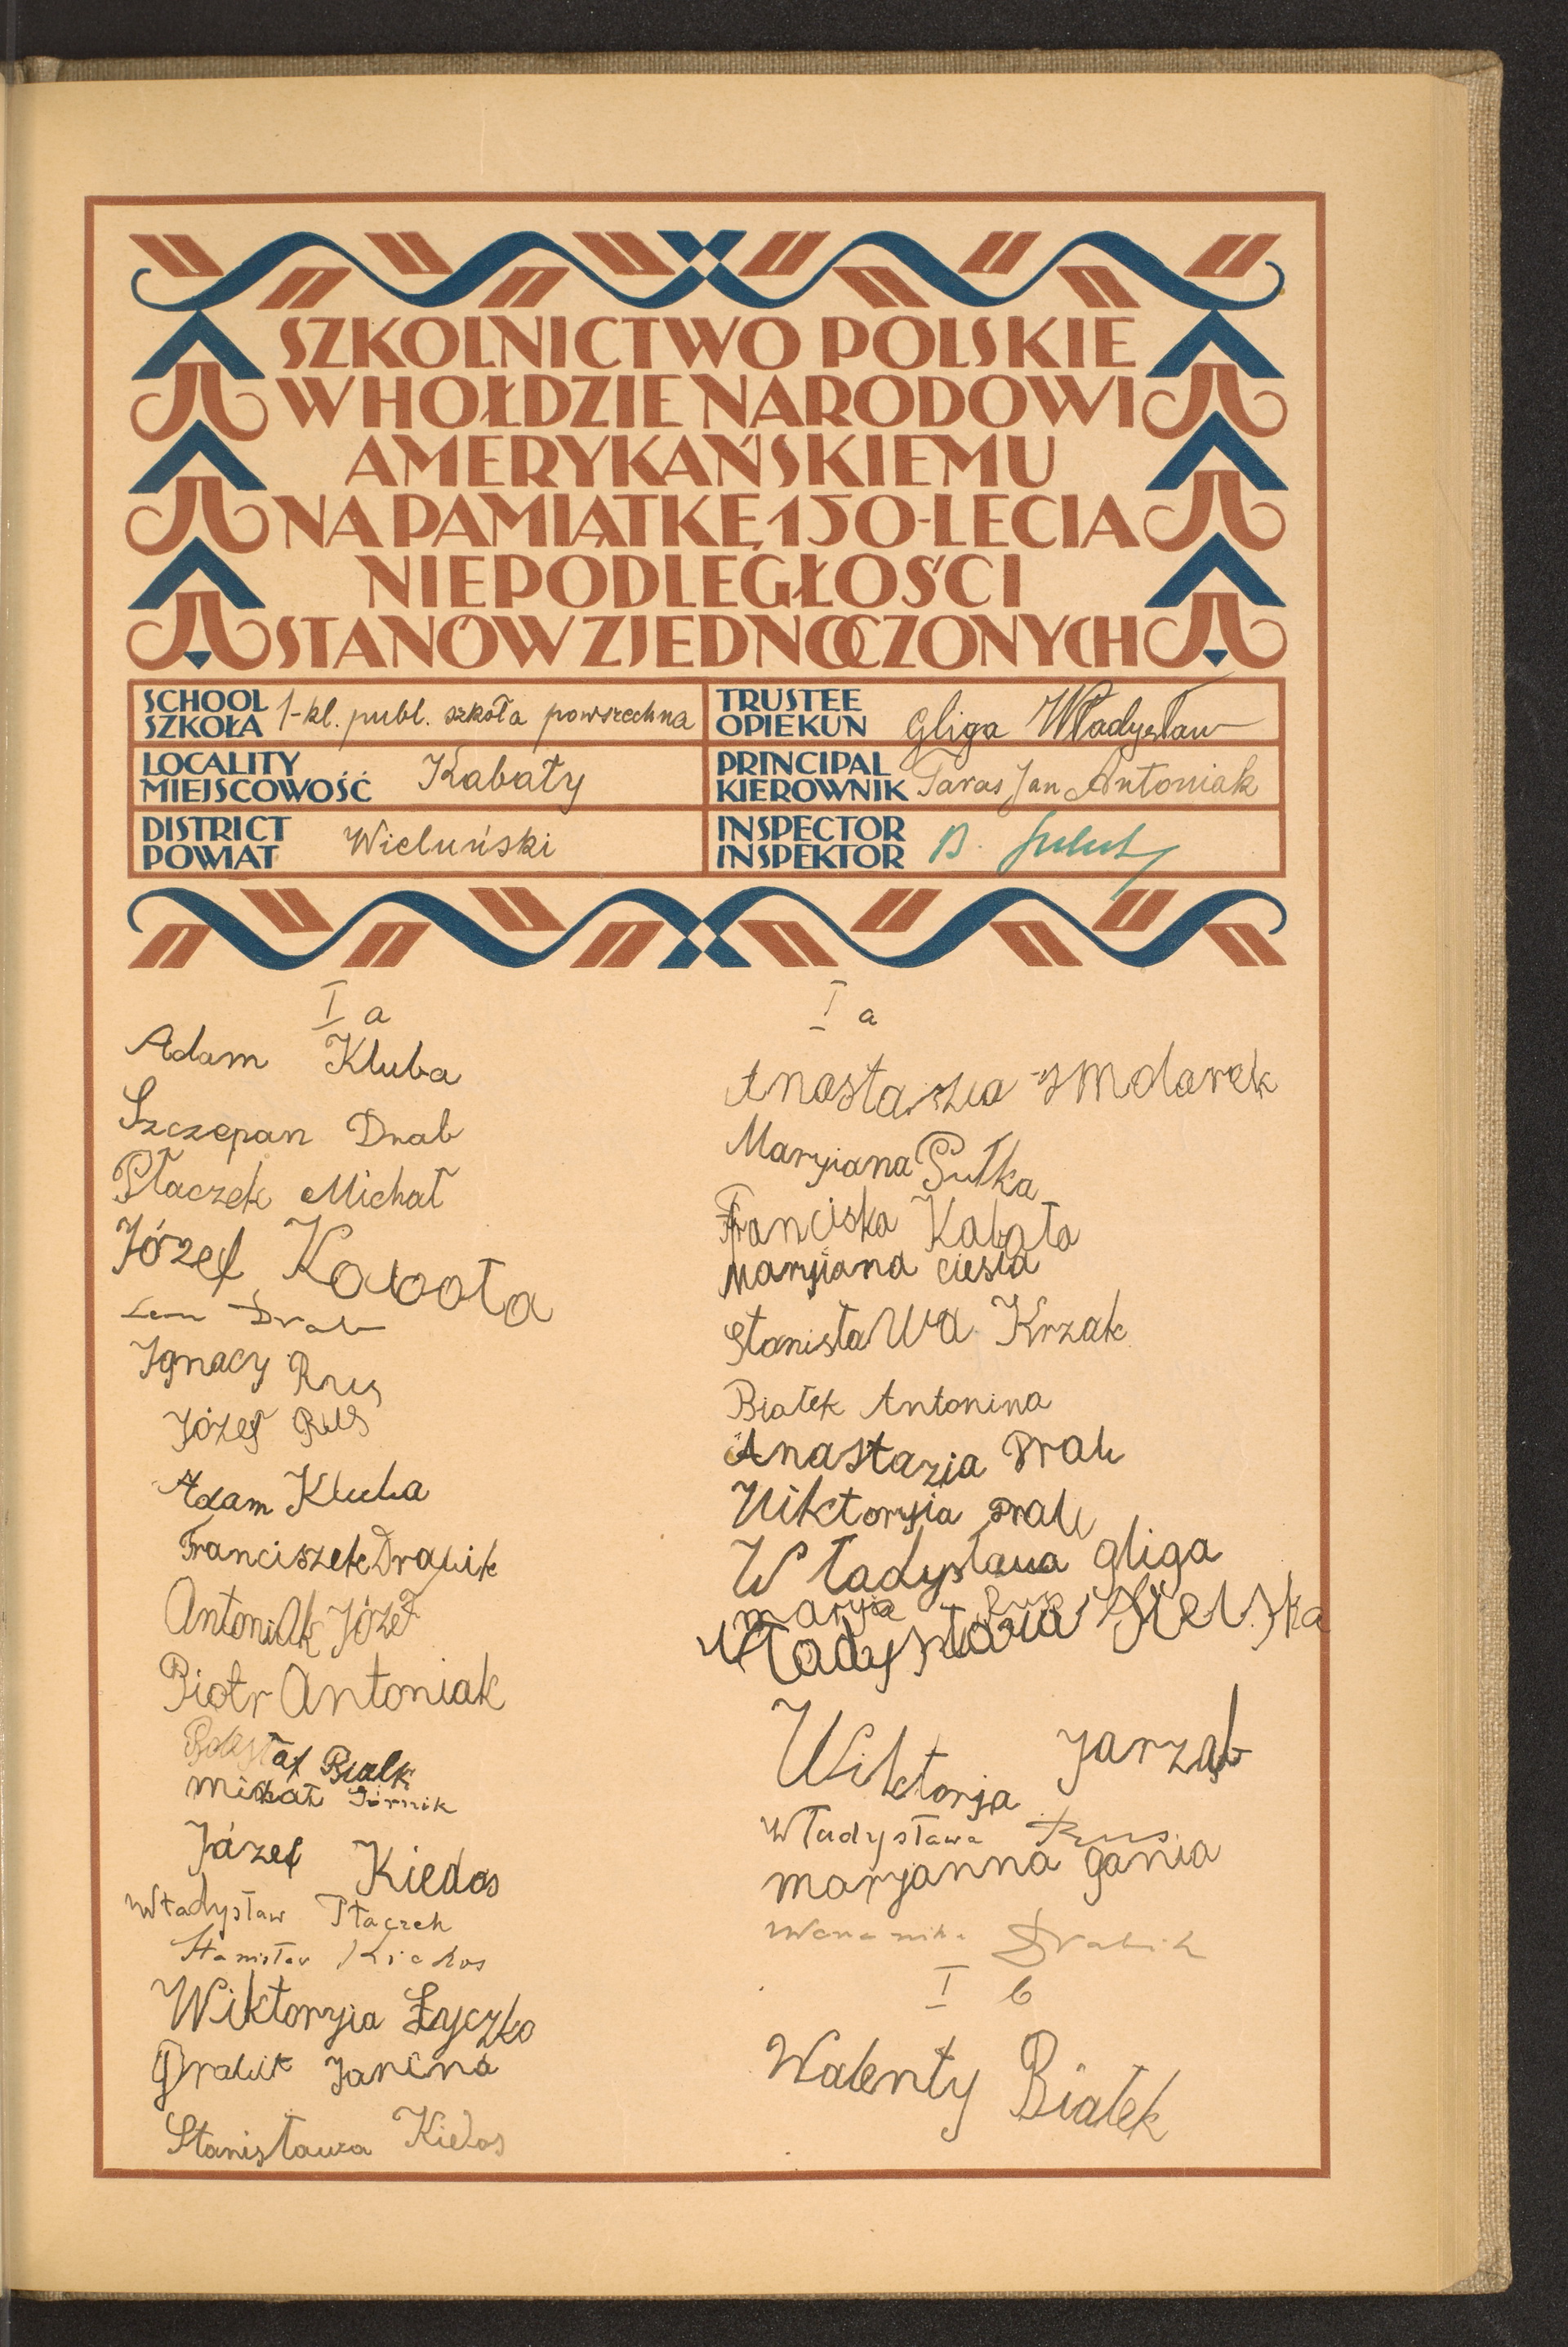 SZKOLNICTWO POLSKIE
W HOŁDZIE NARODOWI
AMERYKAŃSKIEMU
NA PAMIĄTKĘ 150-LECIA
NIEPODLEGŁOŚCI
STANÓW ZJEDNOCZONYCH
SCHOOL
SZKOŁA 1-kl. publ. szkoła powszechna
TRUSTEE
OPIEKUN Gliga Władysław
LOCALITY
MIEJSCOWOŚĆ Kabaty
PRINCIPAL
KIEROWNIK Taras Jan Antoniak
DISTRICT
POWIAT Wieluński
INSPECTOR
INSPEKTOR B.
I a
Adam Kluba
Szczepan Drab
Płaczek Michał
Józef Kabała
Drab
Ignacy Rus
Józef Rus
Adam Kluba
Franciszek Drabik
Antoniak Józef
Piotr Antoniak
Bolesław Białk
Michał Górnik
Józef Kiedos
Władysław Płaczek
Stanisław Kiedos
Wiktoryia Łyczko
Drabik Janina
Stanisława Kiedos
I a
Anastazia Smolarek
Maryiana Pułka
Franciska Kabała
Maryiana ciesla
Stanisława Krzak
Białek Antonina
Anastazia Drab
Wiktoryia Drab
Władysława gliga
marya Rus
Władysława
Wiktorja Jarząb
Władysława Rus
maryanna gania
Drabik
I b
Walenty Białek